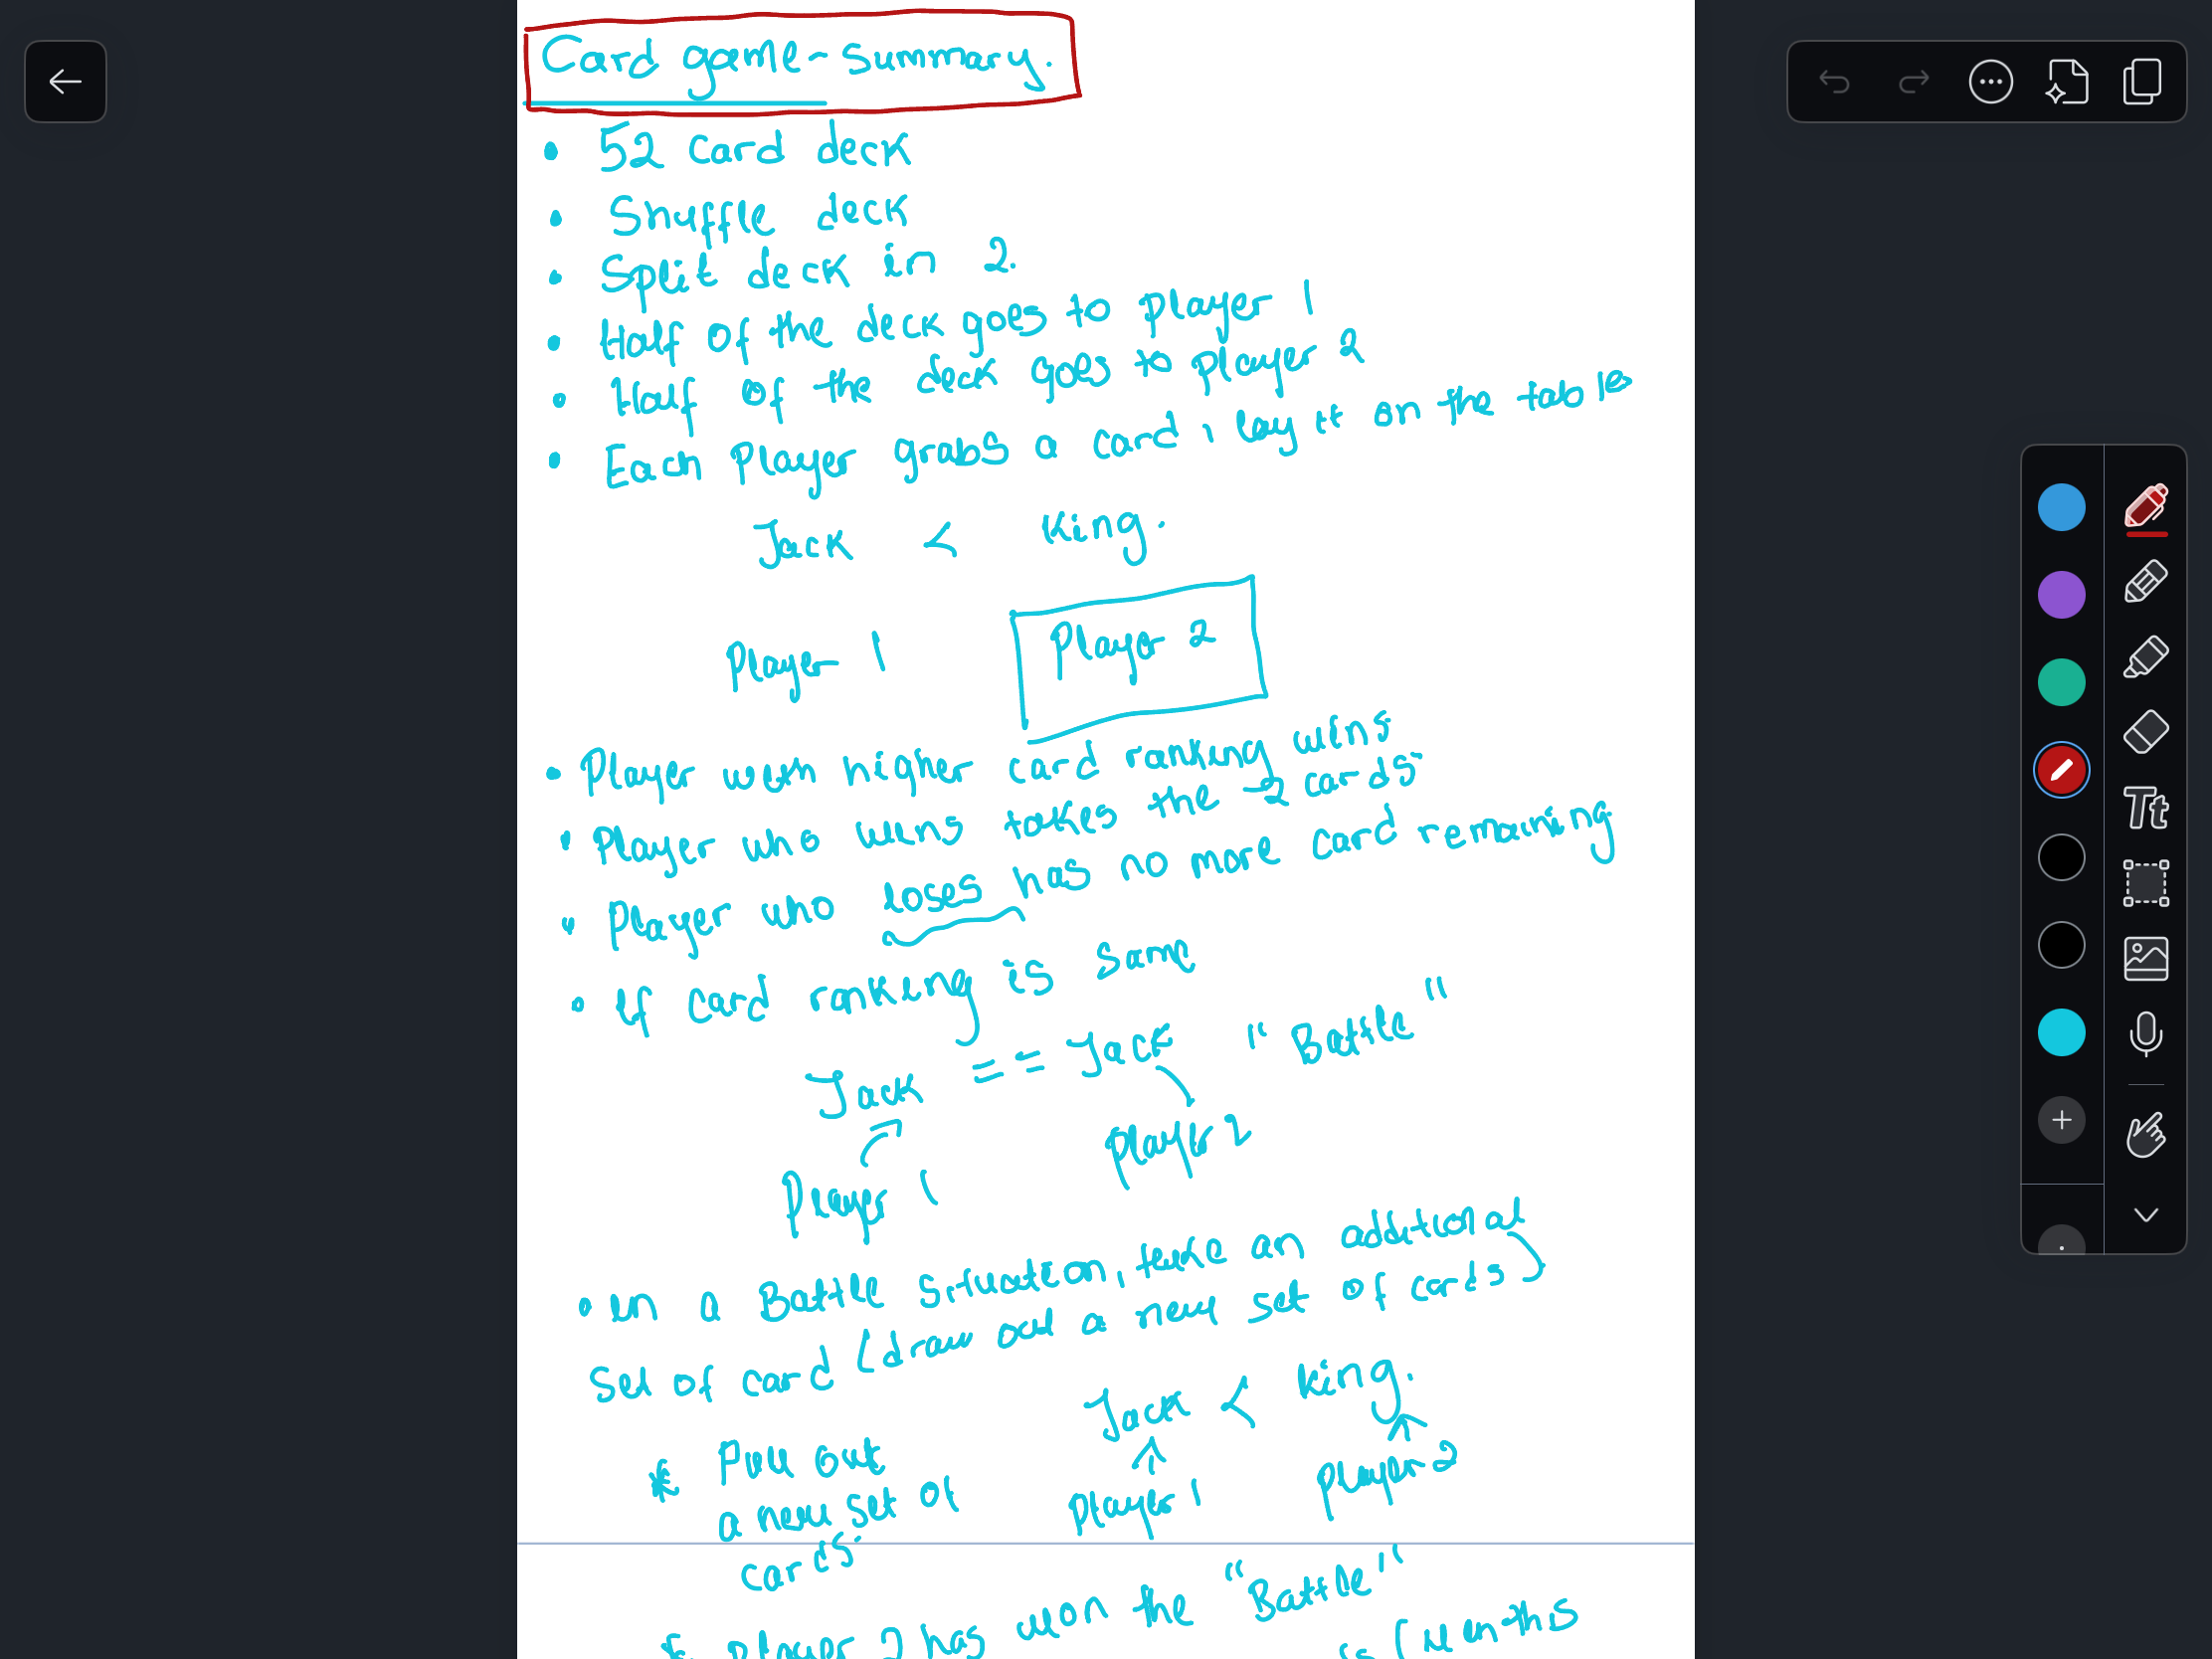 Card game - Summary.
• 52 card deck
• Shuffle deck
• Split deck in 2.
• Half of the deck goes to player 1
• Half of the deck goes to player 2
• Each player grabs a card, lay it on the table
Jack < King.
Player 1 Player 2
• Player with higher card ranking wins
• Player who wins takes the 2 cards
• Player who loses has no more card remaining
• If card ranking is same
Jack == Jack "Battle"
Player 1 player 2
• In a Battle situation, take an additional
Set of card (draw out a new set of cards)
Jack < King.
* Pull out
a new set of
cards.
player 1 player 2
* Player 2 has won the "Battle"
(in this
Tt